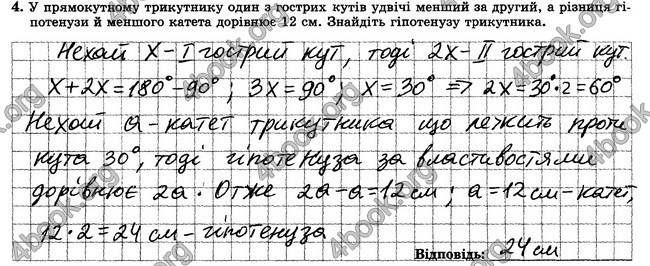 4. У прямокутному трикутнику один з гострих кутів удвічі менший за другий, а різниця гі-
потенузи й меншого катета дорівнює 12 см. Знайдіть гіпотенузу трикутника.
Нехай X - I гострий кут, тоді 2X - II гострий кут.
X + 2X = 180° - 90° ; 3X = 90° ; X = 30° => 2X = 30°·2 = 60°
Нехай a - катет трикутника що лежить проти
кута 30°, тоді гіпотенуза за властивостями
дорівнює 2a. Отже 2a - a = 12 см ; a = 12 см - катет,
12 · 2 = 24 см - гіпотенуза
Відповідь: 24 см
4book.org